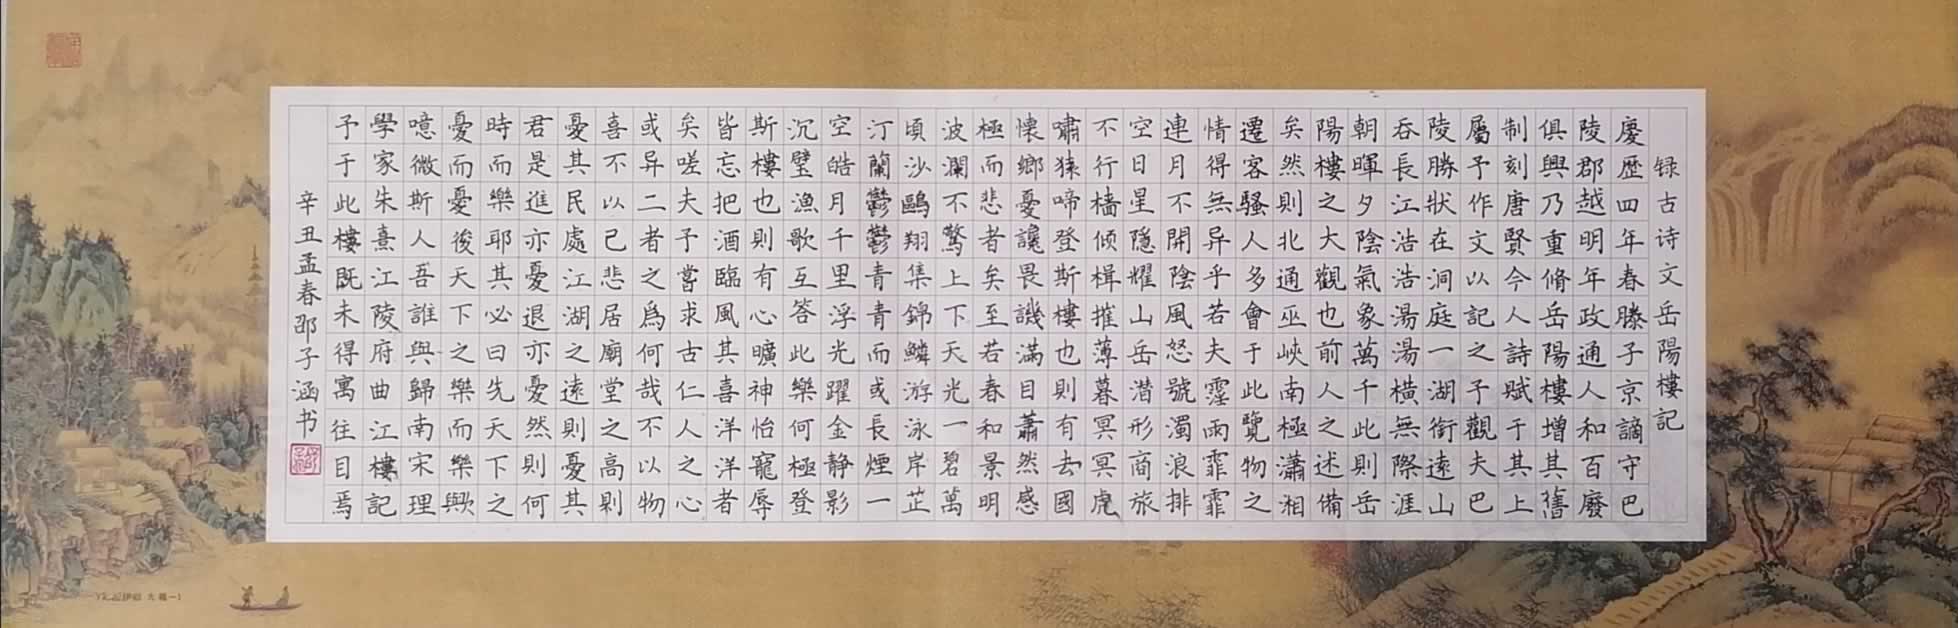 録古诗文岳陽樓記
慶歷四年春滕子京謫守巴
陵郡越明年政通人和百廢
俱興乃重脩岳陽樓增其舊
制刻唐賢今人詩賦于其上
屬予作文以記之予觀夫巴
陵勝狀在洞庭一湖銜遠山
吞長江浩浩湯湯橫無際涯
朝暉夕陰氣象萬千此則岳
陽樓之大觀也前人之述備
矣然則北通巫峽南極瀟湘
遷客騷人多會于此覽物之
情得無异乎若夫霪雨霏霏
連月不開陰風怒號濁浪排
空日星隱耀山岳潜形商旅
不行檣倾楫摧薄暮冥冥虎
嘯猿啼登斯樓也則有去國
懷鄉憂讒畏譏滿目蕭然感
極而悲者矣至若春和景明
波瀾不驚上下天光一碧萬
頃沙鷗翔集錦鱗游泳岸芷
汀蘭鬱鬱青青而或長煙一
空皓月千里浮光躍金静影
沉璧漁歌互答此樂何極登
斯樓也則有心曠神怡寵辱
皆忘把酒臨風其喜洋洋者
矣嗟夫予嘗求古仁人之心
或异二者之爲何哉不以物
喜不以己悲居廟堂之高則
憂其民處江湖之遠則憂其
君是進亦憂退亦憂然則何
時而樂耶其必曰先天下之
憂而憂後天下之樂而樂歟
噫微斯人吾誰與歸南宋理
學家朱熹江陵府曲江樓記
予于此樓既未得寓往目焉
辛丑孟春邵子涵书